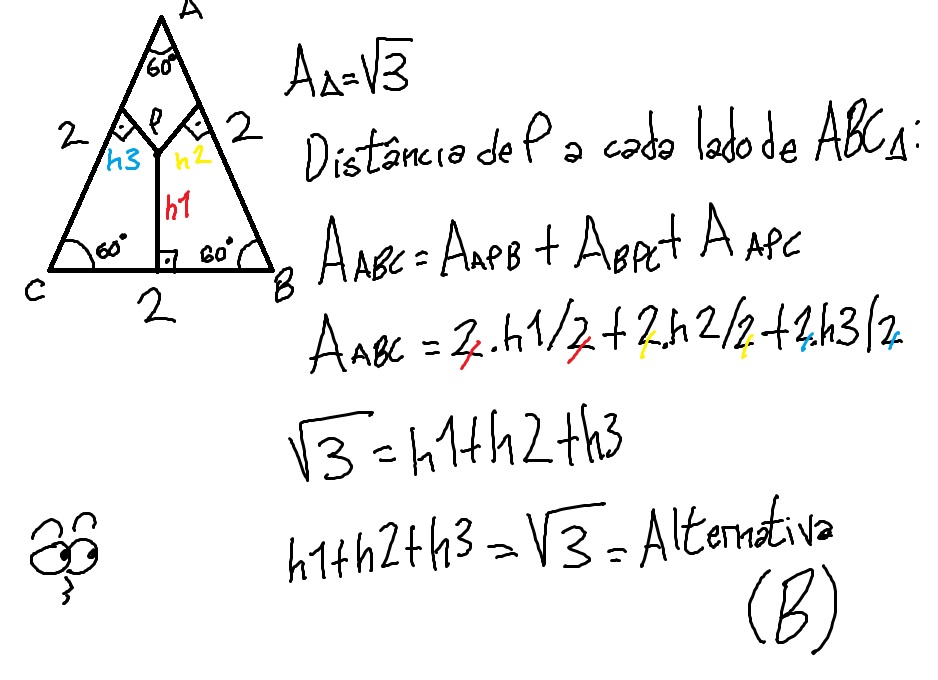 A
60°
P
2
2
h3
h2
h1
60°
60°
C
B
2
A∆=√3
Distância de P a cada lado de ABC∆:
AABC = AAPB + ABPC + AAPC
AABC = 2.h1/2 + 2.h2/2 + 2.h3/2
√3 = h1+h2+h3
h1+h2+h3 = √3 = Alternativa
(B)